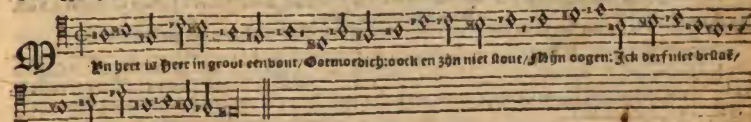 MYn hert is Heer in groot eenvout/Ootmoedich: oock en zijn niet stout/Mijn oogen: Ick derf niet bestaē/